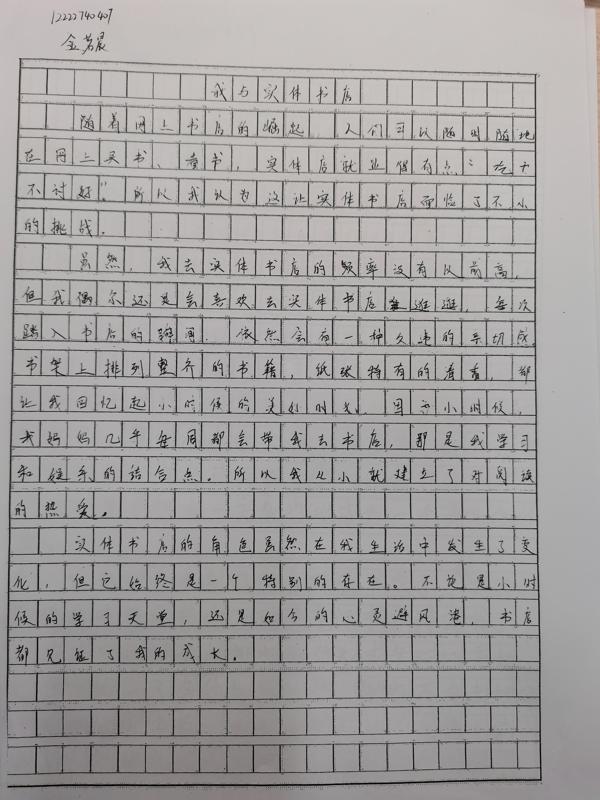 12222740407
金茗晨
我与实体书店
随着网上书店的崛起 人们可以随时随地
在网上买书、看书, 实体店就业绩有点"吃力
不讨好"。所以我认为这让实体书店面临了不小
的挑战.
虽然, 我去实体书店的频率没有以前高,
但我偶尔还是会喜欢去实体书店逛逛, 每次
踏入书店的瞬间, 依然会有一种久违的亲切感
书架上排列整齐的书籍, 纸张特有的清香, 都
让我回忆起小时候的美好时光. 因为小时候,
我妈妈几乎每周都会带我去书店, 那是我学习
和娱乐的结合点。所以我从小就建立了对阅读
的热爱。
实体书店的角色虽然在我生活中发生了变
化, 但它始终是一个特别的存在。不论是小时
候的学习天堂, 还是如今的心灵避风港, 书店
都见证了我的成长。